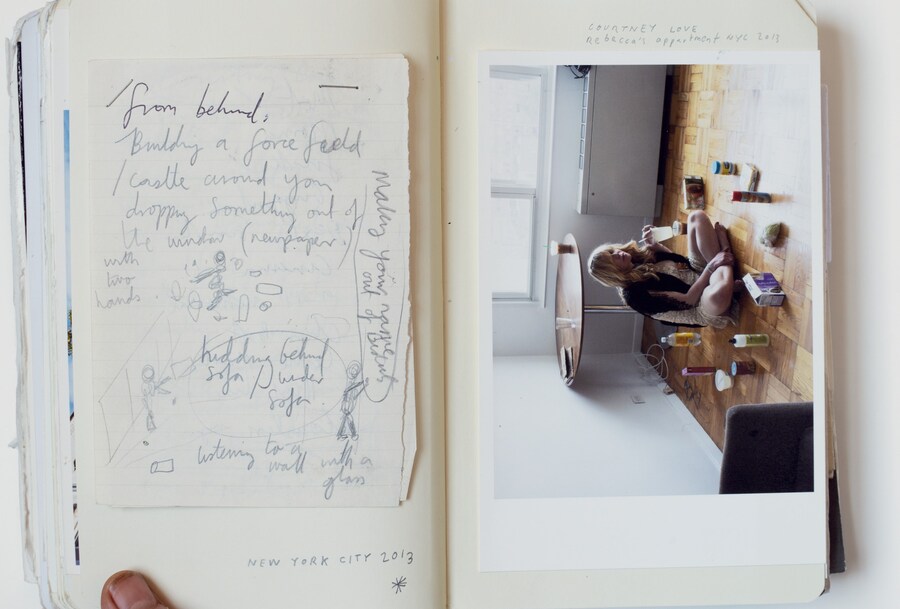 /from behind,
Building a force field
/castle around you
dropping something out of
the window (newspaper.)
with
two
hands.
Making your name
out of
hidding behind
sofa / under
sofa.
listening to a
wall with a
glass
NEW YORK CITY 2013
COURTNEY LOVE
Rebecca's appartment NYC 2013